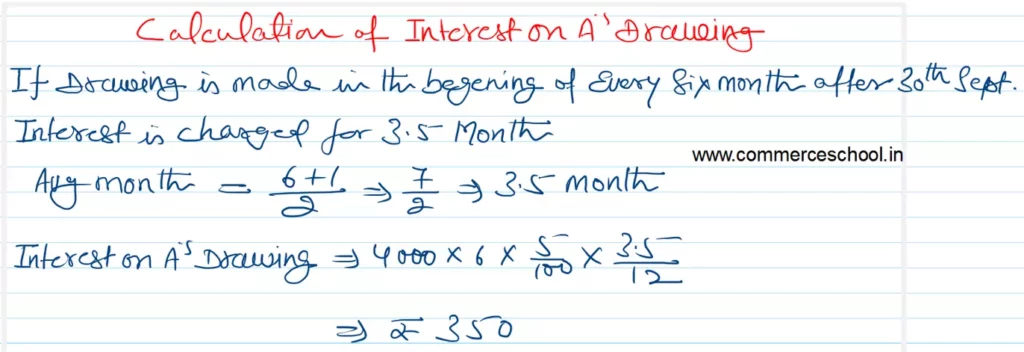 Calculation of Interest on A's Drawing
If Drawing is made in the begening of Every Six month after 30th Sept.
Interest is charged for 3.5 Month
www.commerceschool.in
Avg month = 6+1/2 ⇒ 7/2 ⇒ 3.5 month
Interest on A's Drawing ⇒ 4000 × 6 × 5/100 × 3.5/12
⇒ ₹ 350